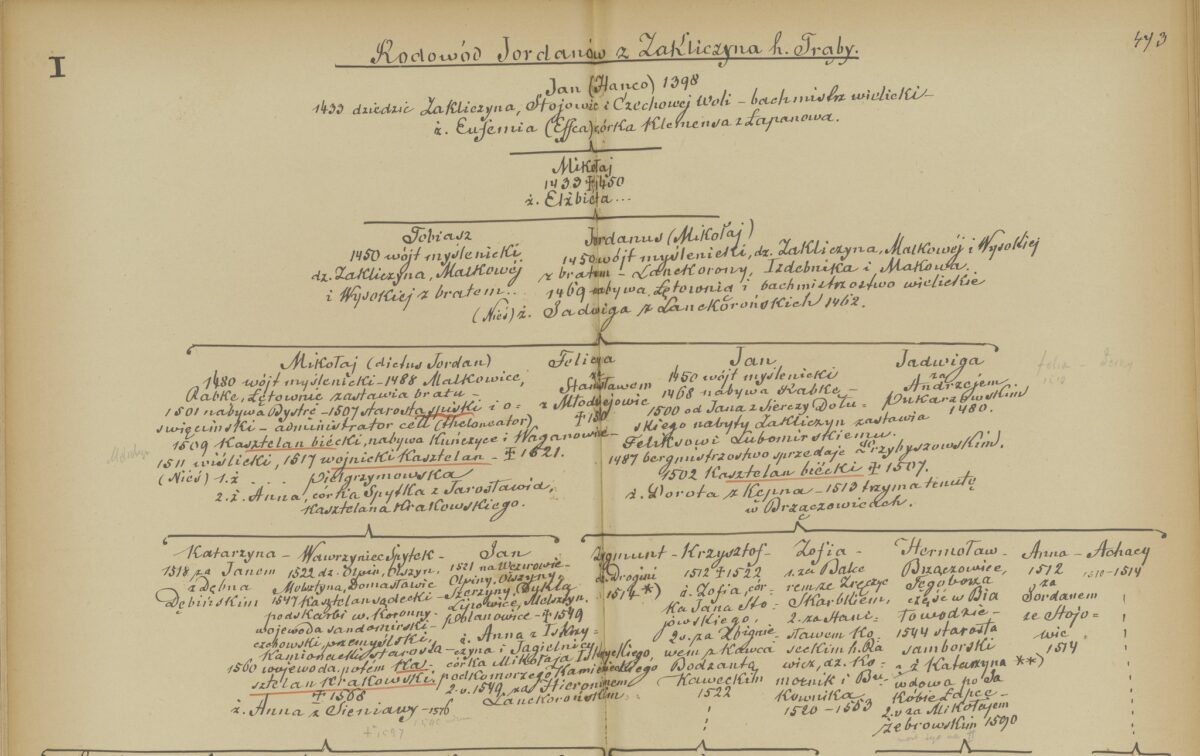 I
473
Rodowód Jordanów z Zakliczyna h. Trąby.
Jan (Hanco) 1398
1433 dziedzic Zakliczyna, Stojowic i Czechowej Woli – bachmistrz wielicki –
ż. Eufemia (Effca) córka Klemensa z Łapanowa.
Mikołaj
1433 ‡ 1450
ż. Elżbieta...
Tobiasz
1450 wójt myślenicki
dz. Zakliczyna, Malkowéj
i Wysokiej z bratem..
Jordanus (Mikołaj)
1450 wójt myślenicki, dz. Zakliczyna, Malkowéj i Wysokiej
z bratem – Lanckorony, Izdebnika i Makowa.
1469 nabywa Łętownią i bachmistrzostwo wielickie
(Nieś) ż. Jadwiga z Lanckorońskich 1462.
Mikołaj (dictus Jordan)
1480 wójt myślenicki – 1488 Malkowice,
Rabkę, Łętownie zastawia bratu –
1501 nabywa Bystrę – 1507 starosta spiski i o=
święcimski – administrator cell (theloneator)
1509 Kasztelan biécki, nabywa Kuńczyce i Waganowice –
1511 wiślicki, 1517 wojnicki Kasztelan – ‡ 1521.
(Nieś) 1.ż ... Pielgrzymowska
2.ż. Anna, córka Spytka z Jarosławia,
Kasztelana Krakowskiego.
Felicja
za
Stanisławem
z Młodziejowic
Jan
1450 wójt myślenicki
1468 nabywa Rabkę –
1500 od Jana z Sierczy Dołu=
skiego nabyty Zakliczyn zastawia
Feliksowi Lubomirskiemu.
1487 bergmistrzostwo sprzedaje Przybyszowskim.
1502 Kasztelan biécki ‡ 1507.
ż. Dorota z Kępna – 1513 trzyma tenutę
w Brzączowicach.
Jadwiga
za
Andrzejem
Pukarzowskim
1480.
Katarzyna –
1518 za Janem
z Dębna
Dębińskim
Wawrzyniec Spytek –
1522 dz. Olpin, Olszyn,
Melsztyna, Domasławic
1547 Kasztelan sądecki
podskarbi w. Koronny.
wojewoda sandomirski –
czchowski, przemyślski,
Kamionacki starosta
1560 wojewoda, potem Ka=
sztelan Krakowski.
‡ 1568
ż. Anna z Sieniawy – 1576
Jan
1521 na Wezurowie
Olpiny, Olszyny,
Szerzyny, Bykla
Lipowice, Melsztyn,
Pohlanowice – ‡ 1549
ż. Anna z Iskrzy=
czyna i Jagielnicy
córka Mikołaja Iskrzyckiego,
podkomorzego Kamienieckiego
2.v. 1549. za Hieronimem
Lanckorońskim.
Zygmunt –
1514 *)
Krzysztof –
1512 ‡ 1522
ż. Zofia, cór=
ka Jana Sto=
jowskiego,
2.v. za Zbignie=
wem z Kawca
Bodzantą
Kaweckim
1522
Zofia –
1. za Balce
rem ze Zręczyc
Skarbkiem,
2. za Stani=
sławem Ko=
seckim h. Ra
wicz, dz. Ko=
morznik i Bu=
Kownika
1520 – 1553
Hermoław –
Brzączowice,
Tęgoborza
część w Bia
towodzie –
1544 starosta
samborski
– ż Katarzyna **)
wdowa po Ja
kobie Łapce –
2.v za Mikołajem
Żebrowskim 1590
Anna –
1512
za
Jordanem
ze Stojo=
wic
1514
Achacy
1510 – 1514